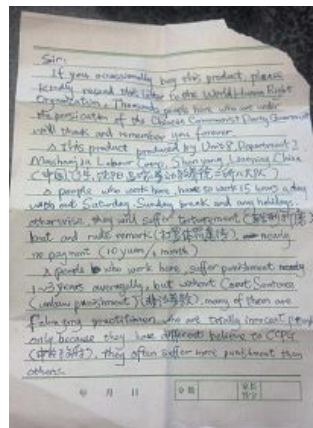 Sir:
If you occassionally buy this product, please
kindly resend this letter to the World Human Right
Organization. Thousands people here who are under
the persicution of the Chinese Communist Party Government
will thank and remember you forever.
△ This product produced by Unit 8, Department 2,
Masanjia Labour Camp, Shenyang, Liaoning, China
(中国, 辽宁, 沈阳 马三家劳动教养院二所八大队)
△ people who work here, have to work 15 hours a day
with out Saturday, Sunday break and any holidays,
otherwise, they will suffer torturement
beat and rude remark nearly
no payment (10 yuan/1 month)
△ people who work here, suffer punishment nearly
1~3 years averagelly, but without Court Sentence
(unlaw punishment) (非法劳教), many of them are
Falun gong practitioner, who are totally innocent people
only because they have different believe to CCPG
they often suffer more punishment than
others.
年 月 日